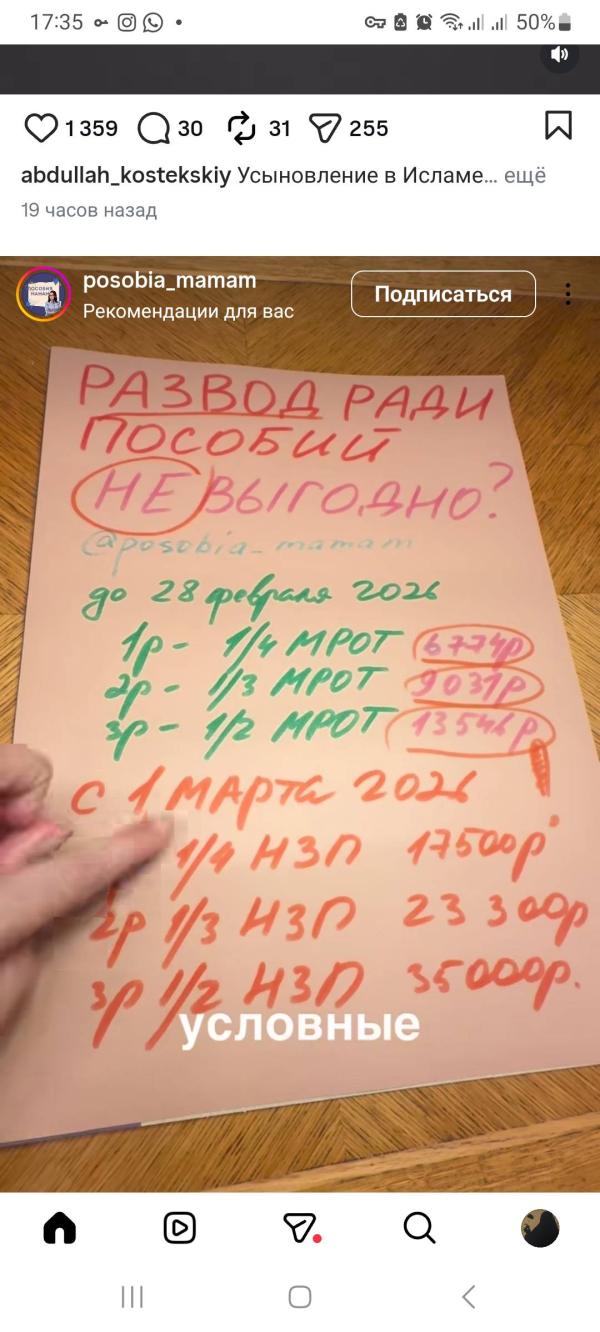 17:35
50%
1 359 30 31 255
abdullah_kostekskiy Усыновление в Исламе... ещё
19 часов назад
posobia_mamam
Рекомендации для вас
Подписаться
РАЗВОД РАДИ
ПОСОБИЙ
НЕВЫГОДНО?
@posobia_mamam
до 28 февраля 2026
1р - 1/4 МРОТ 6774р
2р - 1/3 МРОТ 9031р
3р - 1/2 МРОТ 13546р
с 1 МАРТА 2026
1/4 НЗП 17500р
2р 1/3 НЗП 23 300р
3р 1/2 НЗП 35000р.
условные